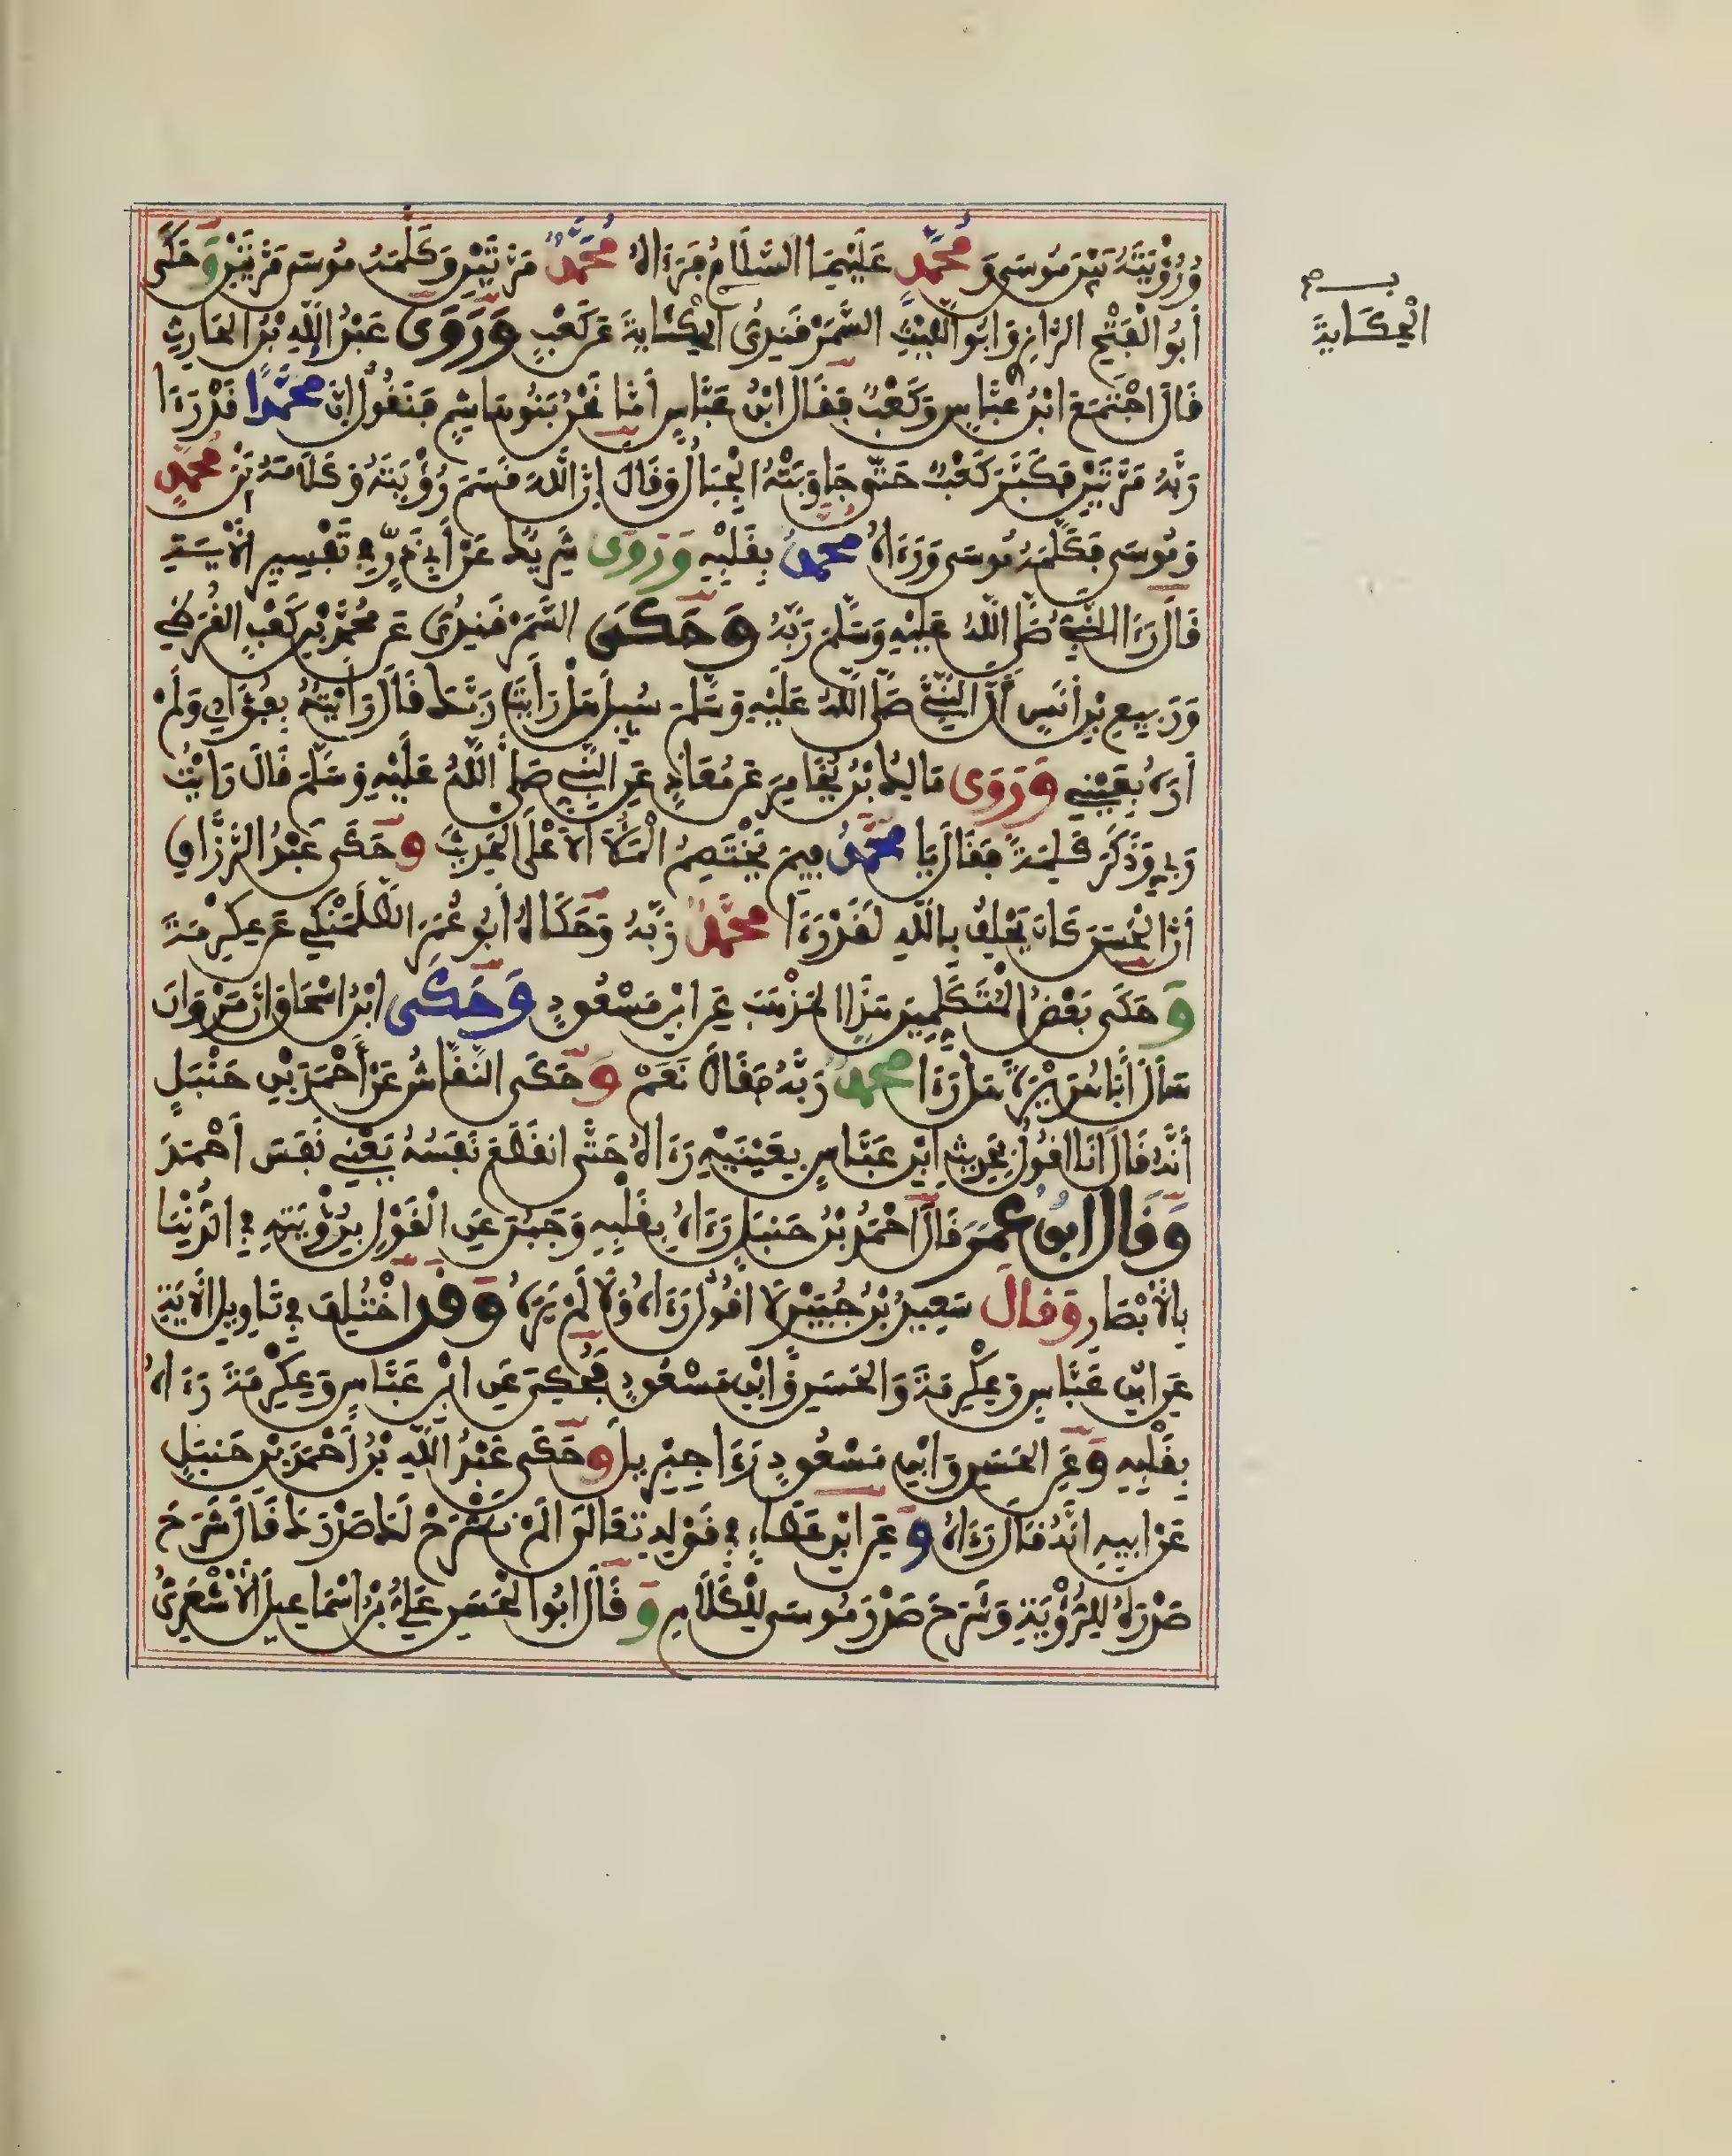 وَرُؤْيَتَهُ بَيْنَ مُوسَى وَمُحَمَّدٍ عَلَيْهِمَا السَّلَامُ فَرَءَاهُ مُحَمَّدٌ مَرَّتَيْنِ وَكَلَّمَهُ مُوسَى مَرَّتَيْنِ وَحَكَى
أَبُو الْفَتْحِ الرَّازِي وَأَبُو اللَّيْثِ السَّمَرْقَنْدِيُّ الْحِكَايَةَ عَنْ كَعْبٍ وَرَوَى عَبْدُ اللَّهِ بْنُ الْحَارِثِ
قَالَ اجْتَمَعَ ابْنُ عَبَّاسٍ وَكَعْبٌ فَقَالَ ابْنُ عَبَّاسٍ أَمَّا نَحْنُ بَنُو هَاشِمٍ فَنَقُولُ إِنَّ مُحَمَّدًا قَدْ رَءَا
رَبَّهُ مَرَّتَيْنِ فَكَبَّرَ كَعْبٌ حَتَّى جَاوَبَتْهُ الْجِبَالُ وَقَالَ إِنَّ اللَّهَ قَسَمَ رُؤْيَتَهُ وَكَلَامَهُ بَيْنَ مُحَمَّدٍ
وَمُوسَى فَكَلَّمَهُ مُوسَى وَرَءَاهُ مُحَمَّدٌ بِقَلْبِهِ وَرَوَى شَرِيكٌ عَنْ أَبِي ذَرٍّ فِي تَفْسِيرِ الْأيَةِ
قَالَ رَءَا النَّبِيُّ صَلَّى اللَّهُ عَلَيْهِ وَسَلَّمَ رَبَّهُ وَحَكَى السَّمَرْقَنْدِيُّ عَنْ مُحَمَّدِ بْنِ كَعْبٍ الْقُرَظِيِّ
وَرَبِيعِ بْنِ أَنَسٍ أَنَّ النَّبِيَّ صَلَّى اللَّهُ عَلَيْهِ وَسَلَّمَ سُئِلَ هَلْ رَأَيْتَ رَبَّكَ قَالَ رَأَيْتُهُ بِفُؤَادِي وَلَمْ
أَرَهُ بِعَيْنِي وَرَوَى مَالِكُ بْنُ يُخَامِرَ عَنْ مُعَاذٍ عَنِ النَّبِيِّ صَلَّى اللَّهُ عَلَيْهِ وَسَلَّمَ قَالَ رَأَيْتُ
رَبِّي وَذَكَرَ كَلِمَةً فَقَالَ يَا مُحَمَّدُ فِيمَ يَخْتَصِمُ الْمَلَأُ الْأَعْلَى الْحَدِيثَ وَحَكَى عَبْدُ الرَّزَّاقِ
أَنَّ الْحَسَنَ كَانَ يَحْلِفُ بِاللَّهِ لَقَدْ رَءَا مُحَمَّدٌ رَبَّهُ وَحَكَاهُ أَبُو عُمَرَ الطَّلَمَنْكِي عَنْ عِكْرِمَةَ
وَحَكَى بَعْضُ الْمُتَكَلِّمِينَ هَذَا الْمَذْهَبَ عَنِ ابْنِ مَسْعُودٍ وَحَكَى ابْنُ إِسْحَاقَ أَنَّ مَرْوَانَ
سَأَلَ أَبَا هُرَيْرَةَ هَلْ رَءَا مُحَمَّدٌ رَبَّهُ فَقَالَ نَعَمْ وَحَكَى النَّقَّاشُ عَنْ أَحْمَدَ بْنِ حَنْبَلٍ
أَنَّهُ قَالَ أَنَا أَقُولُ بِحَدِيثِ ابْنِ عَبَّاسٍ بِعَيْنَيْهِ رَءَاهُ حَتَّى انْقَطَعَ نَفَسُهُ يَعْنِي نَفَسَ أَحْمَدَ
وَقَالَ أَبُو عُمَرَ قَالَ أَحْمَدُ بْنُ حَنْبَلٍ رَءَاهُ بِقَلْبِهِ وَجَبُنَ عَنِ الْقَوْلِ بِرُؤْيَتِهِ فِي الدُّنْيَا
بِالْأَبْصَارِ وَقَالَ سَعِيدُ بْنُ جُبَيْرٍ لَا أَقُولُ رَءَاهُ وَلَا لَمْ يَرَهُ وَقَدِ اخْتُلِفَ فِي تَأْوِيلِ الْأيَةِ
عَنِ ابْنِ عَبَّاسٍ وَعِكْرِمَةَ وَالْحَسَنِ وَابْنِ مَسْعُودٍ فَحُكِيَ عَنِ ابْنِ عَبَّاسٍ وَعِكْرِمَةَ رَءَاهُ
بِقَلْبِهِ وَعَنِ الْحَسَنِ وَابْنِ مَسْعُودٍ رَءَا جِبْرِيلَ وَحَكَى عَبْدُ اللَّهِ بْنُ أَحْمَدَ بْنِ حَنْبَلٍ
عَنْ أَبِيهِ أَنَّهُ قَالَ رَءَاهُ وَعَنِ ابْنِ عَطَاءٍ فِي قَوْلِهِ تَعَالَى أَلَمْ نَشْرَحْ لَكَ صَدْرَكَ قَالَ شَرَحَ
صَدْرَهُ لِلرُّؤْيَةِ وَشَرَحَ صَدْرَ مُوسَى لِلْكَلَامِ وَقَالَ أَبُو الْحَسَنِ عَلِيُّ بْنُ إِسْمَاعِيلَ الْأَشْعَرِيُّ
الْحِكَايَةَ